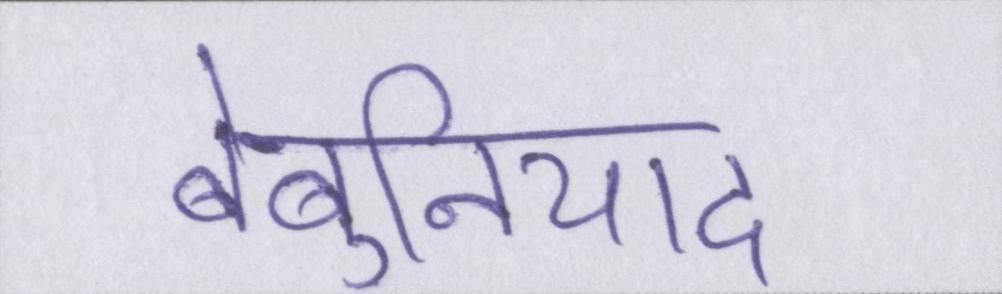 बेबुनियाद